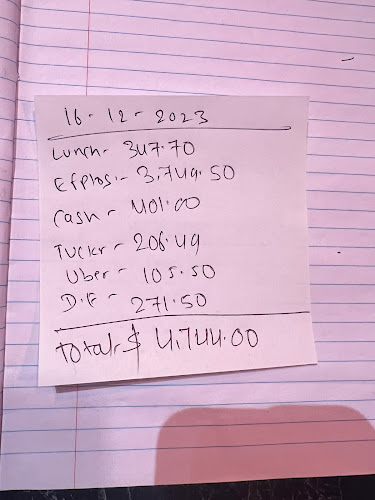 16-12-2023
Lunch- 347.70
Efplos:- 3,749.50
Cash - 401.00
Tuckr - 206.49
Uber - 105.50
D.F - 271.50
Total-$ 4,744.00